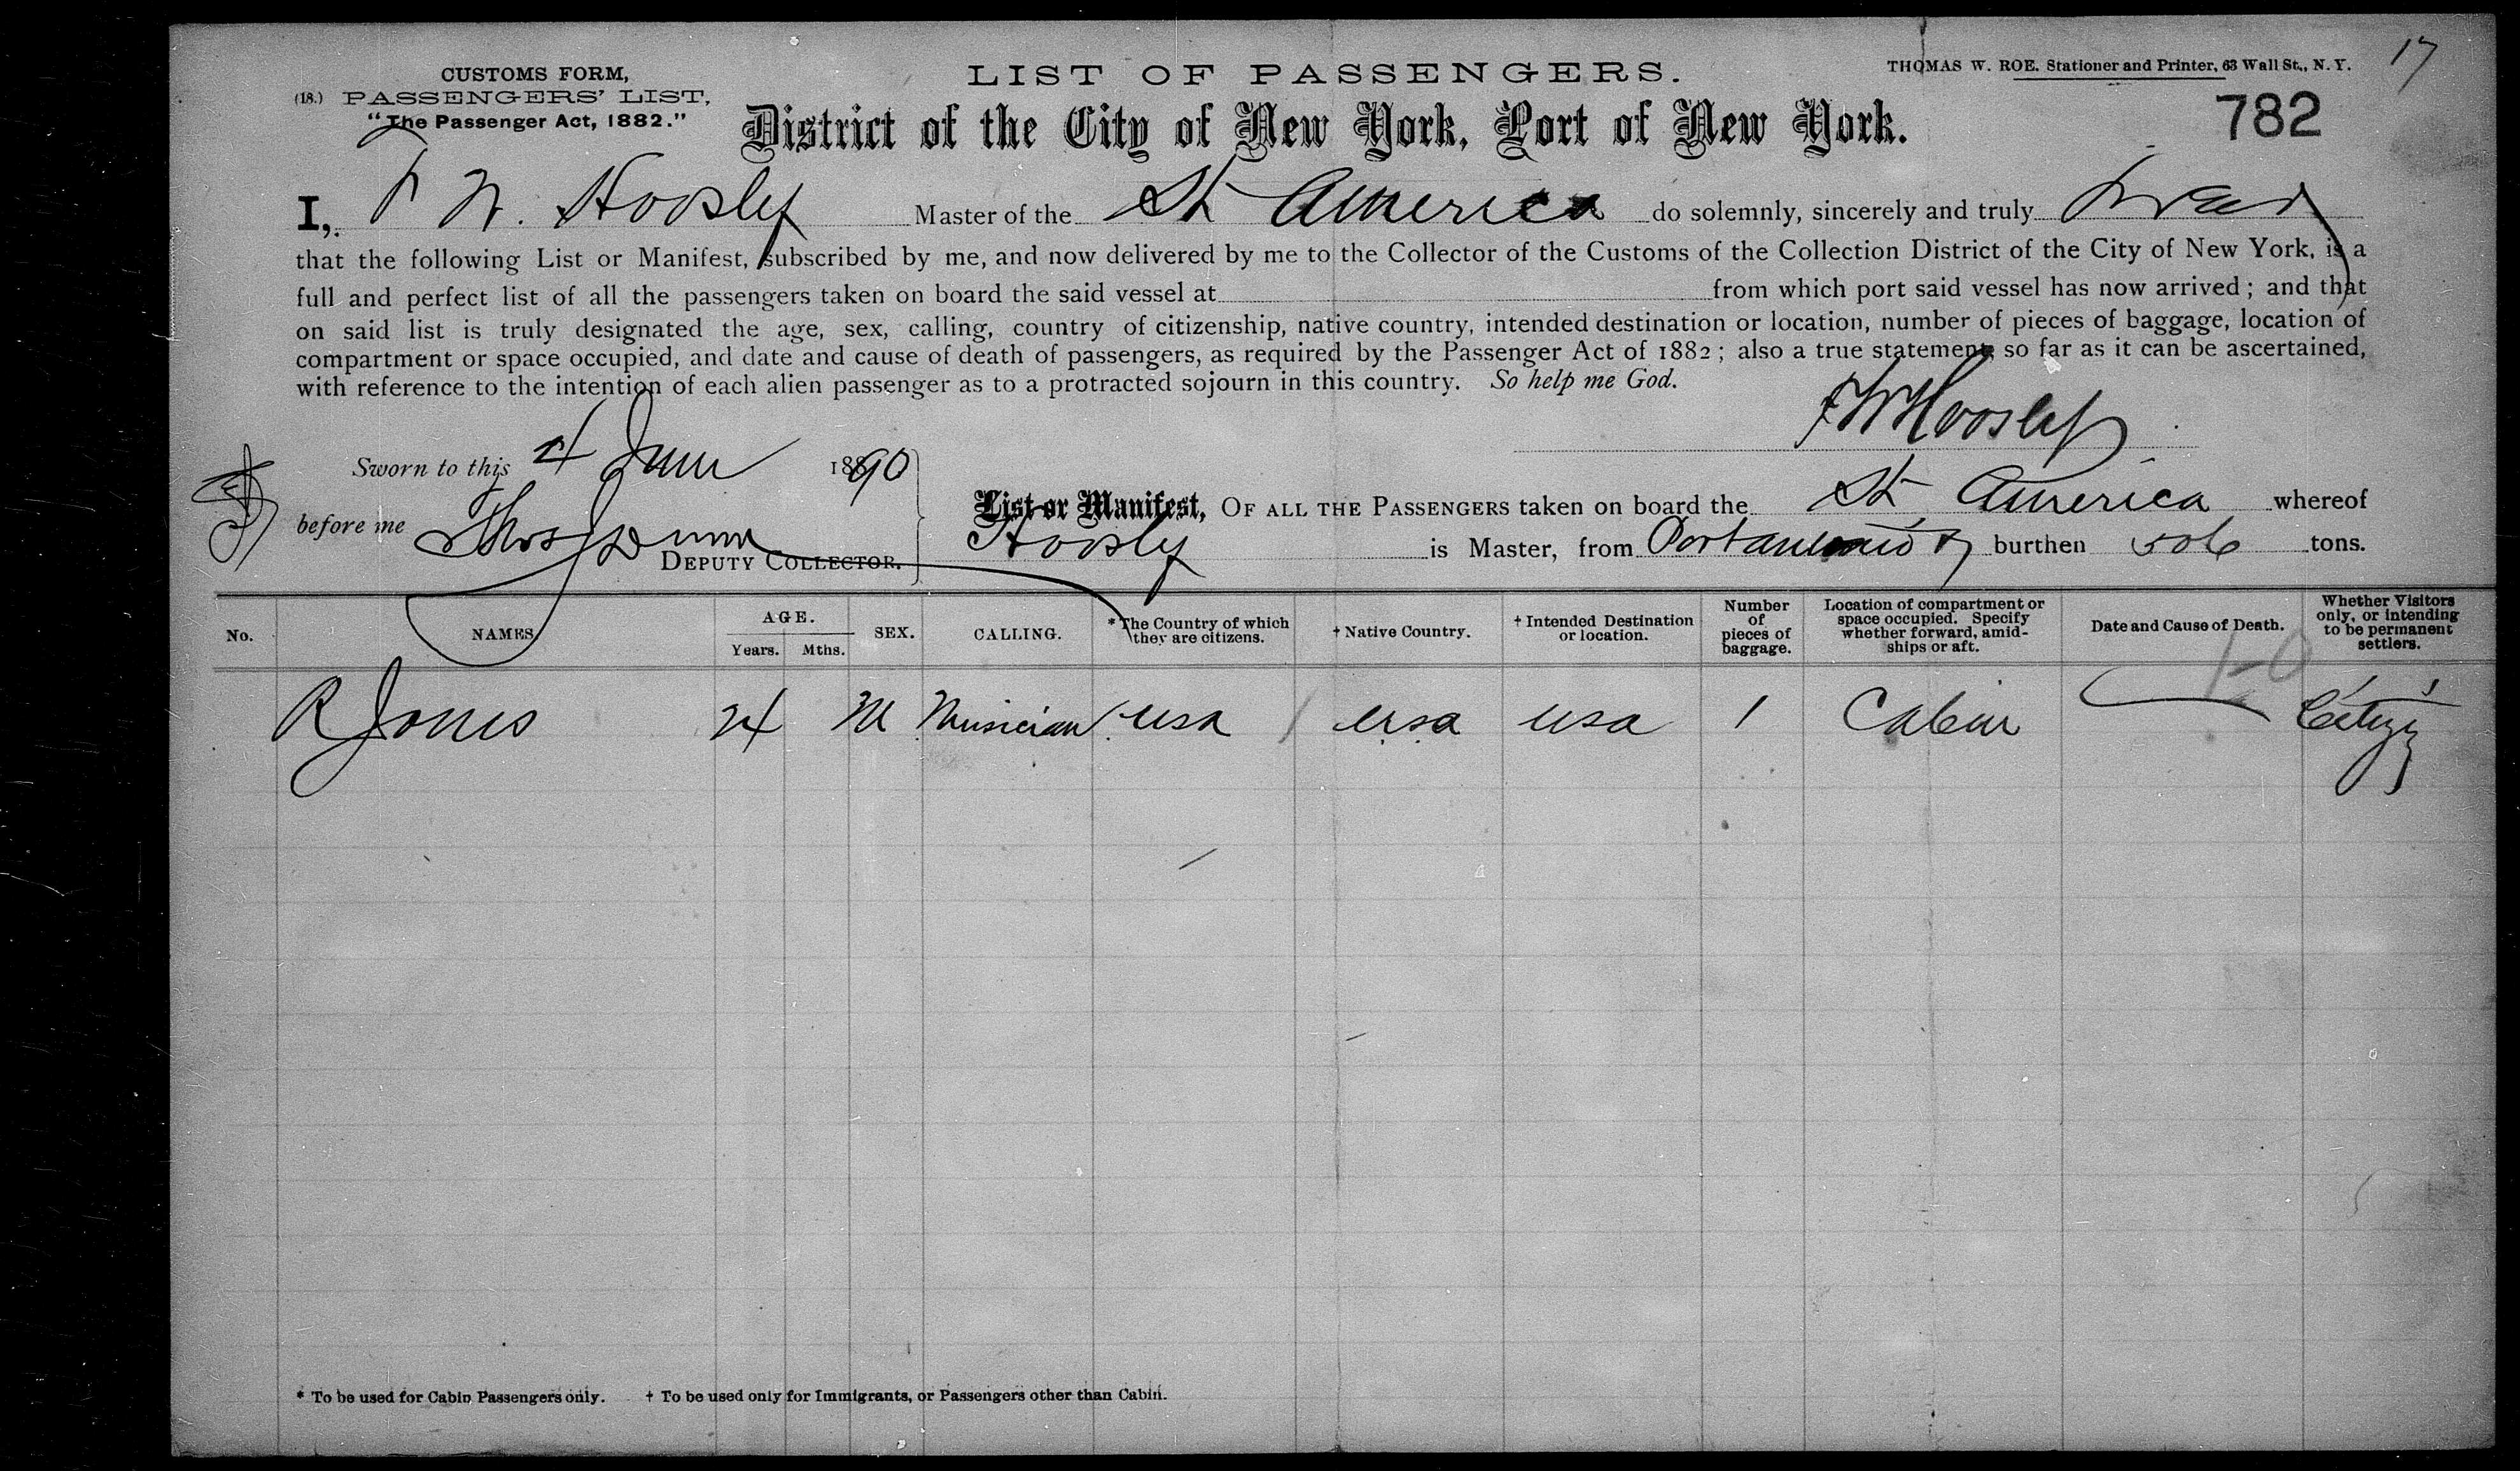 17
CUSTOMS FORM,
(18.) PASSENGERS' LIST,
"The Passenger Act, 1882."
LIST OF PASSENGERS.
THOMAS W. ROE. Stationer and Printer, 63 Wall St., N. Y.
District of the City of New York, Port of New York.
782
I, F W. Hoosly Master of the St America do solemnly, sincerely and truly swear
that the following List or Manifest, subscribed by me, and now delivered by me to the Collector of the Customs of the Collection District of the City of New York, is a
full and perfect list of all the passengers taken on board the said vessel at from which port said vessel has now arrived; and that
on said list is truly designated the age, sex, calling, country of citizenship, native country, intended destination or location, number of pieces of baggage, location of
compartment or space occupied, and date and cause of death of passengers, as required by the Passenger Act of 1882; also a true statement so far as it can be ascertained,
with reference to the intention of each alien passenger as to a protracted sojourn in this country. So help me God.
FW Hoosly
Sworn to this 4 June 1890
before me Thos Dunn
DEPUTY COLLECTOR.
List or Manifest, OF ALL THE PASSENGERS taken on board the St America whereof
Hoosly is Master, from Port antonio burthen 506 tons.
No. NAMES. AGE. Years. Mths. SEX. CALLING. *The Country of which they are citizens. † Native Country. † Intended Destination or location. Number of pieces of baggage. Location of compartment or space occupied. Specify whether forward, amidships or aft. Date and Cause of Death. Whether Visitors only, or intending to be permanent settlers.
R Jones 24 M Musician usa usa usa 1 Cabin
* To be used for Cabin Passengers only. † To be used only for Immigrants, or Passengers other than Cabin.